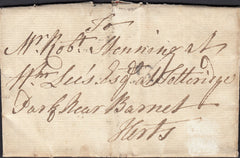 To
Mr. Robt. Henning at
Wm. Lee's Esqr. at Totteridge
Park Near Barnet
Herts